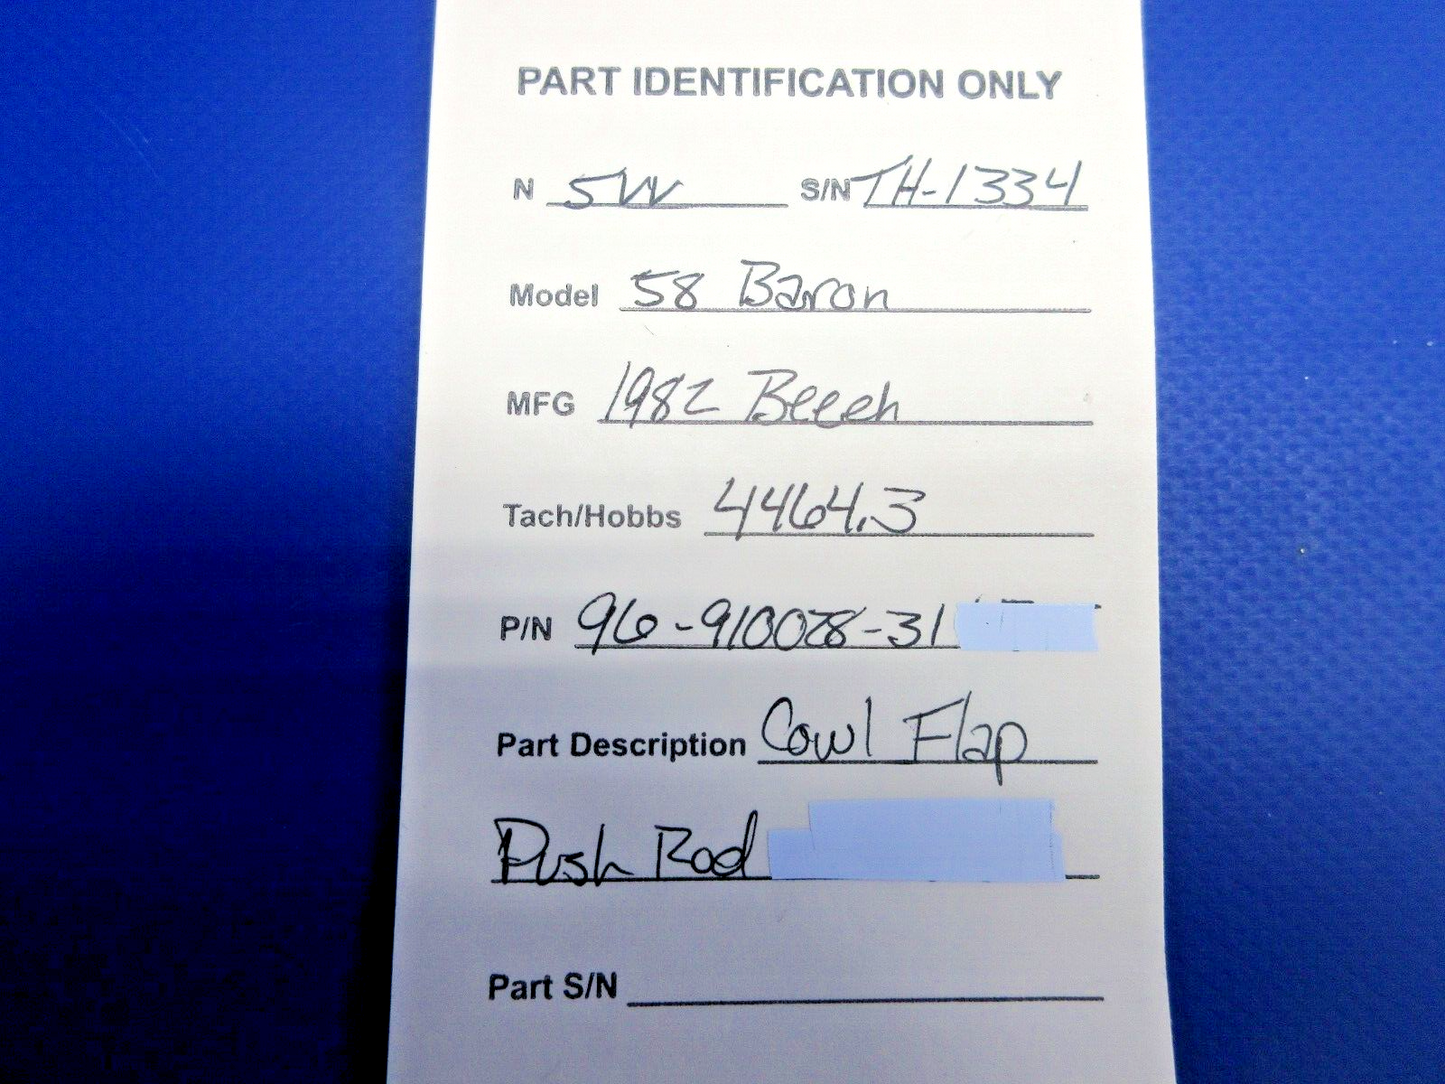 PART IDENTIFICATION ONLY
N 5W S/N TH-1334
Model 58 Baron
MFG 1982 Beech
Tach/Hobbs 4464.3
P/N 96-910028-31
Part Description Cowl Flap
Push Rod
Part S/N